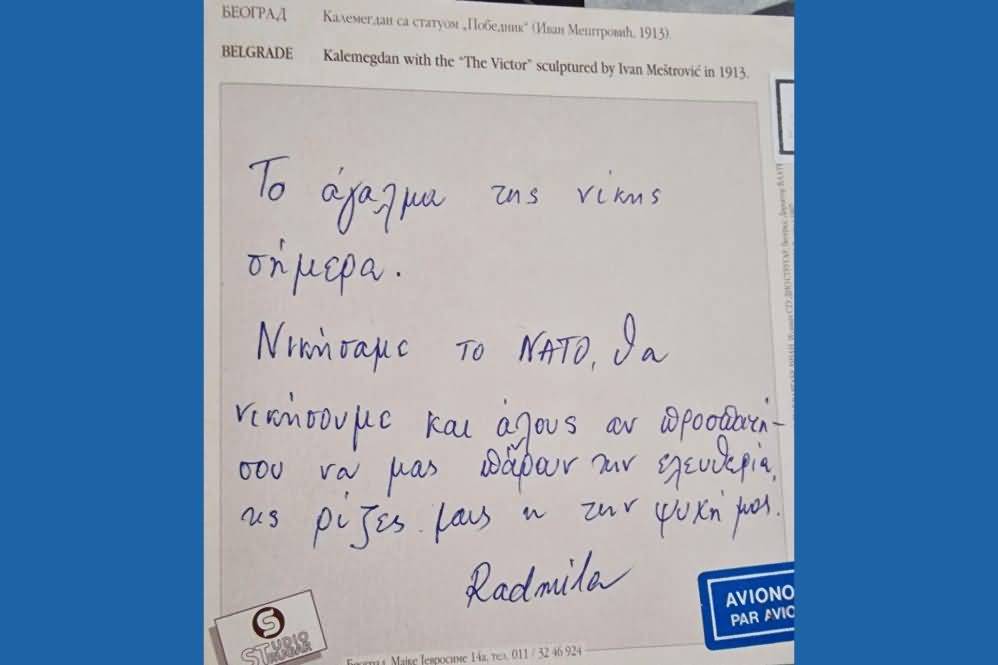 БЕОГРАД Калемегдан са статуом „Победник“ (Иван Мештровић, 1913)
BELGRADE Kalemegdan with the “The Victor” sculptured by Ivan Meštrović in 1913.
Το άγαλμα της νίκης
σήμερα.
Νικήσαμε το ΝΑΤΟ, θα
νικήσουμε και άλους αν προσπατή-
σου να μας πάραν την ελευθερία,
τις ρίζες μας η την ψυχή μας.
Radmila
AVIONO
PAR AVIO
STUDIO
Београд, Мајке Јевросиме 14а, тел. 011 / 32 46 924